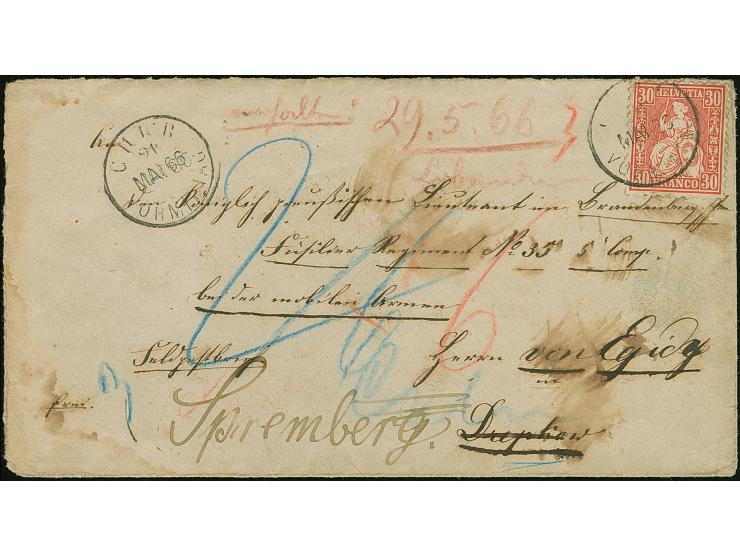 erhalten: 29.5.66
CHUR
21
MAI 66
VORM
30 HELVETIA 30
30 FRANCO 30
An
den Königlich preußischen Lieutenant im Brandenburgischen
Füsilier Regiment No 35 5 Comp.
bei der mobilen Armee
Feldpostbrief
Herrn von Egidy
in
frei.
Spremberg.
Drebkau